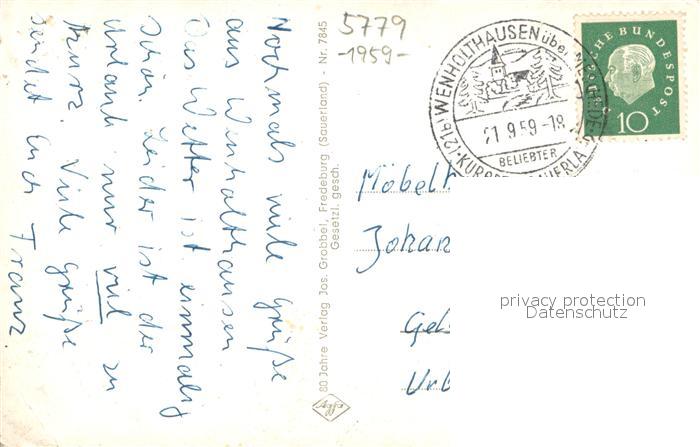 Nochmals viele Grüße
aus Wenholthausen
Das Wetter ist einmalig
schön. Leider ist der
Urlaub nur viel zu
kurz. Viele Grüße
sendet Euch Franz
80 Jahre Verlag Jos. Grobbel, Fredeburg (Sauerland) - Nr. 7845
Gesetzl. gesch.
Agfa
5779
-1959-
(21b) WENHOLTHAUSEN über MESCHEDE
21.9.59-18
BELIEBTER
KURORT SAUERLA
DEUTSCHE BUNDESPOST
10
Möbelh
Johan
Gels
Urb
privacy protection
Datenschutz